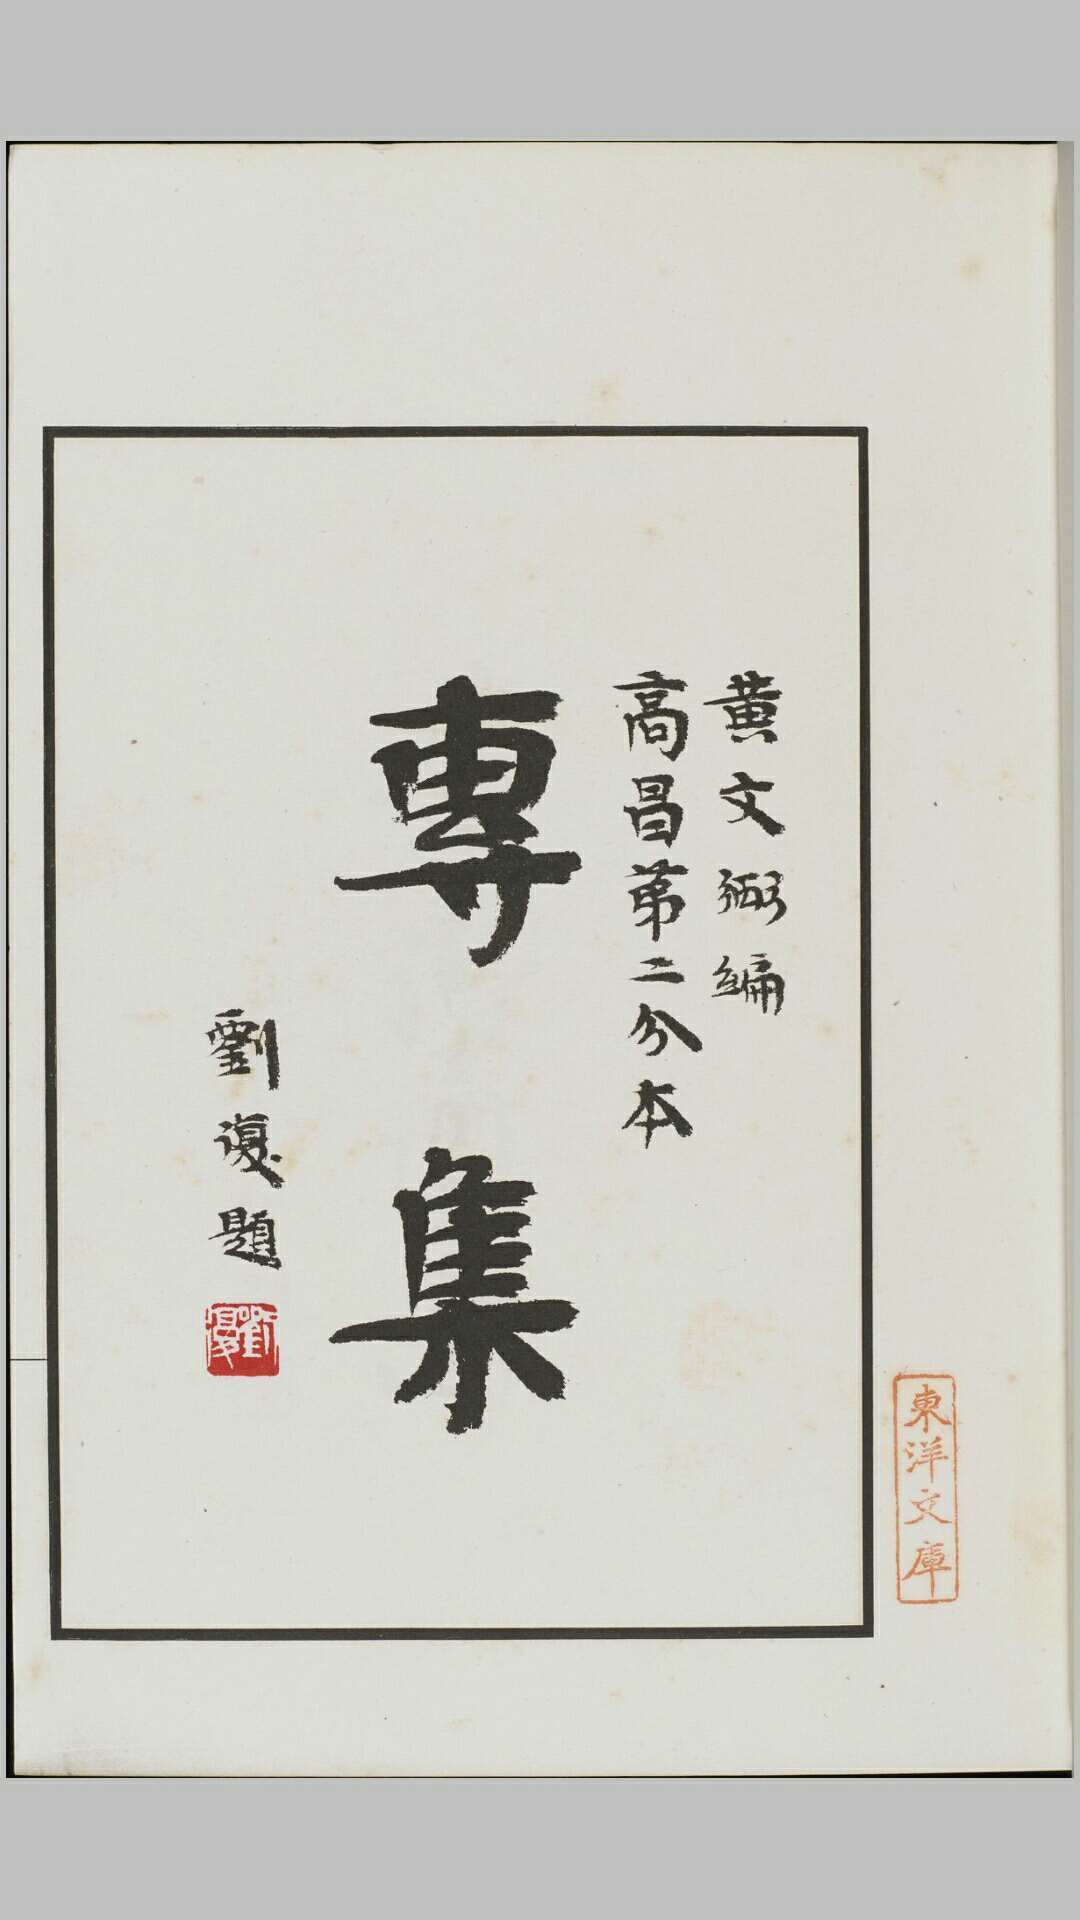 黄文弼編
高昌第二分本
專集
劉復題
劉復
東洋文庫